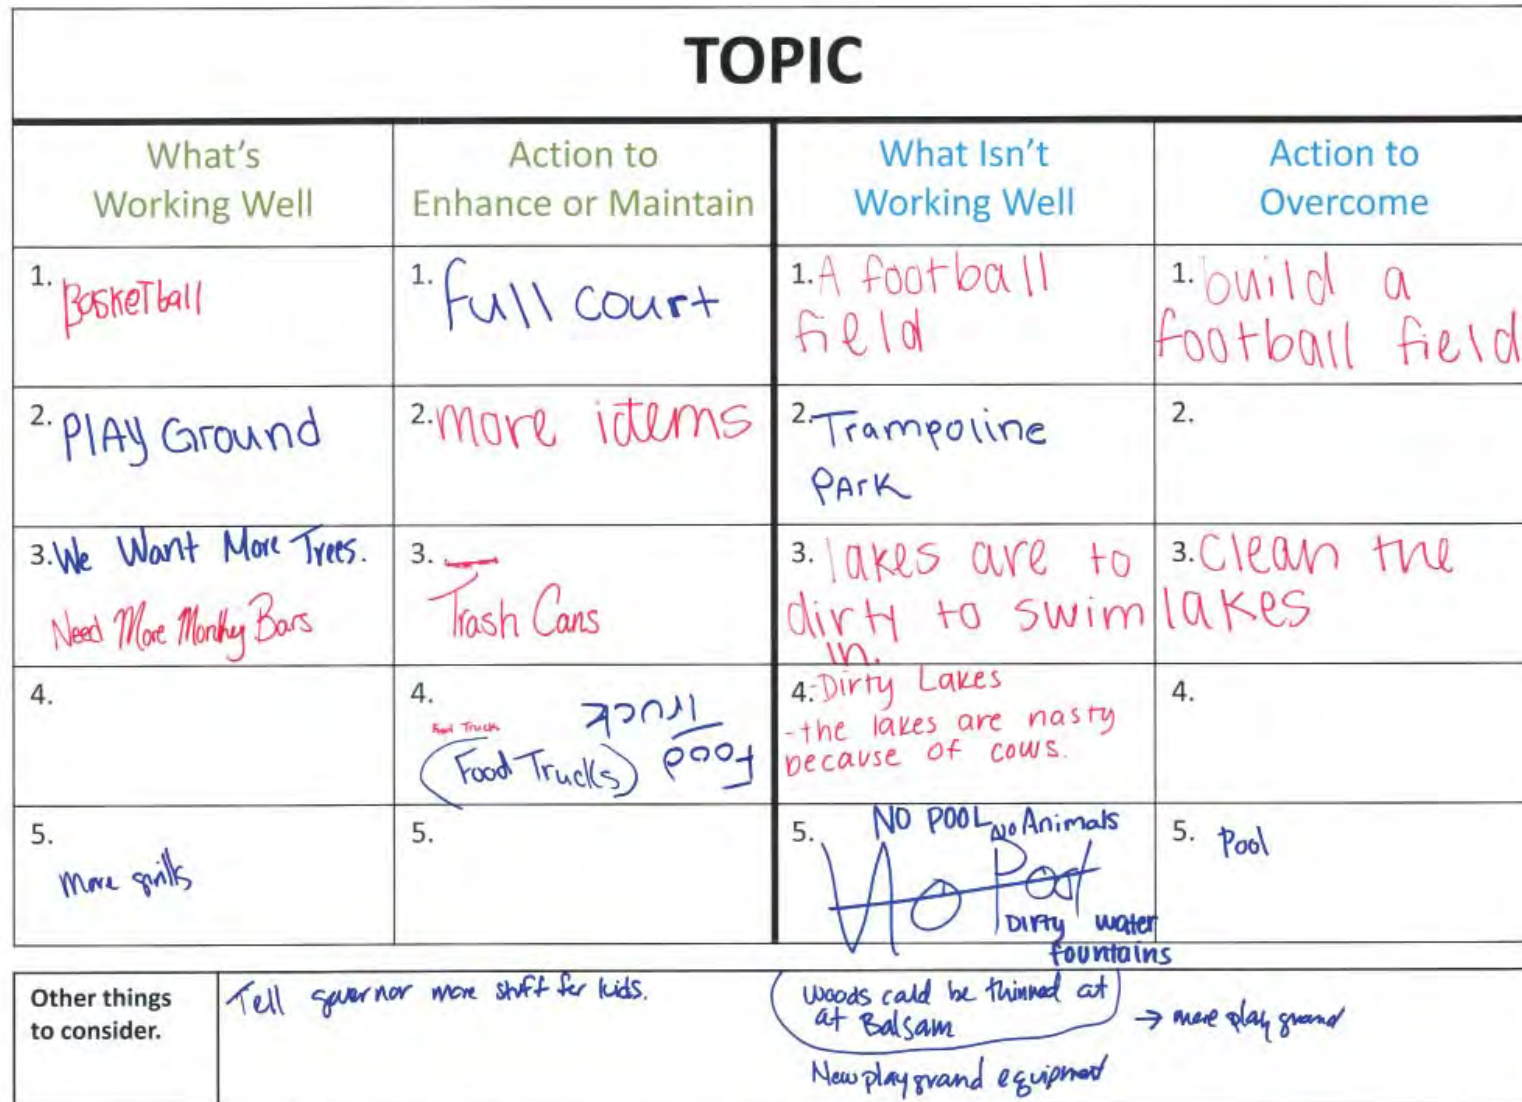 TOPIC
What's
Working Well
Action to
Enhance or Maintain
What Isn't
Working Well
Action to
Overcome
1. BaskeTball
1. full court
1. A football
field
1. build a
football field
2. PlAy Ground
2. more idems
2. Trampoline
PArK
2.
3. We Want More Trees.
Need More Monkey Bars
3.
Trash Cans
3. lakes are to
dirty to swim
in.
3. Clean the
lakes
4.
4.
Food Truck
(Food Trucks)
Food
Truck
4. -Dirty Lakes
-the lakes are nasty
because of cows.
4.
5.
More grills
5.
5. NO POOL NO Animals
No Pool
Dirty water
fountains
5. Pool
Other things
to consider.
Tell governor more stuff for kids.
woods could be thinned at
at Balsam
→ more play ground
New playground equipment